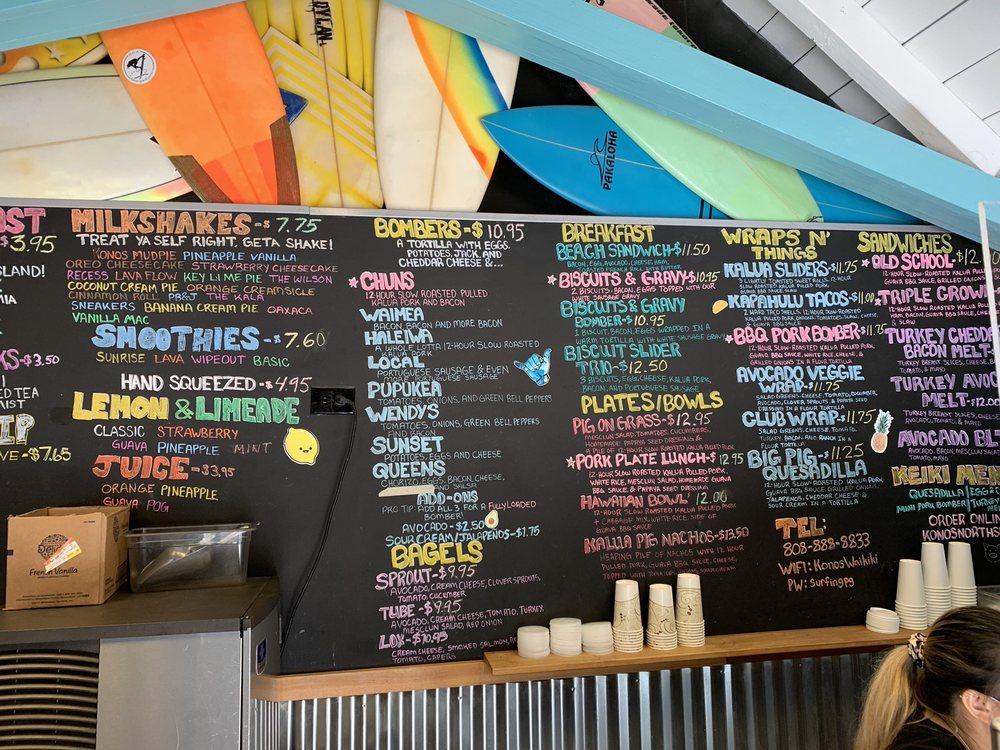 DYLAN
PAKALOHA
$3.95
ISLAND!
$3.50
TEA
$7.65
MILKSHAKES - $7.75
TREAT YA SELF RIGHT, GET A SHAKE!
KONOS MUDPIE PINEAPPLE VANILLA
OREO CHEESECAKE STRAWBERRY CHEESECAKE
RECESS LAVA FLOW KEY LIME PIE THE WILSON
COCONUT CREAM PIE ORANGE CREAMSICLE
CINNAMON ROLL PB&J THE KALA
SNEAKERS BANANA CREAM PIE OAXACA
VANILLA MAC
SMOOTHIES - $7.60
SUNRISE LAVA WIPEOUT BASIC
HAND SQUEEZED - $4.95
LEMON & LIMEADE
CLASSIC STRAWBERRY
GUAVA PINEAPPLE MINT
JUICE - $3.95
ORANGE PINEAPPLE
GUAVA POG
French Vanilla
BOMBERS - $10.95
A TORTILLA WITH EGGS,
POTATOES, JACK, AND
CHEDDAR CHEESE &...
CHUNS
12-HOUR SLOW ROASTED PULLED
KALUA PORK AND BACON
WAIMEA
BACON, BACON AND MORE BACON
HALEIWA
A WHOLE LOTTA 12-HOUR SLOW ROASTED
KALUA PORK
LOCAL
PORTUGUESE SAUSAGE & EVEN
MORE PORTUGUESE SAUSAGE
PUPUKEA
TOMATOES, ONIONS, AND GREEN BELL PEPPERS
WENDYS
TOMATOES, ONIONS, GREEN BELL PEPPERS
AND BACON
SUNSET
POTATOES, EGGS AND CHEESE
QUEENS
CHORIZO, EGGS, BACON, CHEESE,
AND SALSA
ADD-ONS
PRO TIP: ADD ALL 3 FOR A FULLY LOADED
BOMBER!
AVOCADO - $2.50
SOUR CREAM/JALAPENOS - $1.75
BAGELS
SPROUT - $9.95
AVOCADO, CREAM CHEESE, CLOVER SPROUTS,
TOMATO, CUCUMBER
TUBE - $9.95
AVOCADO, CREAM CHEESE, TOMATO, TURKEY
MESCLUN SALAD, RED ONION
LOX - $10.95
CREAM CHEESE, SMOKED SALMON,
TOMATO, CAPERS
BREAKFAST
BEACH SANDWICH - $11.50
BACON, EGG, AVOCADO, CHEESE ON
TOASTED FRENCH ROLL WITH BUTTER
BISCUITS & GRAVY $10.95
2 BISCUITS, BACON, EGGS TOPPED WITH OUR
WHITE SAUSAGE GRAVY
BISCUITS & GRAVY
BOMBER - 10.95
1 BISCUIT, BACON, EGGS WRAPPED IN A
WARM TORTILLA WITH WHITE SAUSAGE GRAVY
BISCUIT SLIDER
TRIO - $12.50
3 BISCUITS, EGG, CHEESE, KALUA PORK,
BACON, AND PORTUGUESE SAUSAGE
PLATES/BOWLS
PIG ON GRASS - $12.95
MESCLUN SALAD, TOMATOES, CUCUMBERS,
HOMEMADE PAPAYA SEED DRESSING &
12-HOUR SLOW ROASTED KALUA PULLED PORK
PORK PLATE LUNCH - $12.95
12-HOUR SLOW ROASTED KALUA PULLED PORK,
WHITE RICE, MESCLUN SALAD, HOMEMADE GUAVA
BBQ SAUCE & PAPAYA SEED DRESSING
HAWAIIAN BOWL 12.00
12-HOUR SLOW ROASTED KALUA PULLED PORK
+ CABBAGE MIX, WHITE RICE, SIDE OF
GUAVA BBQ SAUCE
KALUA PIG NACHOS - $13.50
HEAPING PILE OF NACHOS WITH 12 HOUR
PULLED PORK, GUAVA BBQ SAUCE, CHEESE
WRAPS N'
THINGS
KALUA SLIDERS - $11.75
KAPAHULU TACOS - $11.00
BBQ PORK BOMBER $11.75
12-HOUR SLOW-ROASTED KALUA PULLED PORK,
GUAVA BBQ SAUCE, WHITE RICE, CHEESE, &
GRILLED ONIONS IN A FLOUR TORTILLA
AVOCADO VEGGIE
WRAP - $11.75
SALAD GREENS, CHEESE, TOMATO, CUCUMBER,
AVOCADO, CLOVER SPROUTS, & MUSTARD
DRESSING IN A FLOUR TORTILLA
CLUB WRAP - $11.75
SALAD GREENS, CHEESE, TOMATO,
TURKEY, BACON, AND RANCH IN A
FLOUR TORTILLA
BIG PIG - $11.25
QUESADILLA
12-HOUR SLOW ROASTED KALUA PORK,
GUAVA BBQ SAUCE, GRILLED ONIONS,
JALAPENOS, CHEDDAR CHEESE &
SOUR CREAM IN A FLOUR TORTILLA
TEL:
808-388-8833
WIFI: KonosWaikiki
PW: surfing99
SANDWICHES
OLD SCHOOL
12-HOUR SLOW-ROASTED KALUA PULLED
TRIPLE CROWN
& SLAW
TURKEY CHEDDA
BACON MELT -
TURKEY BREAST SLICES, CHEESE,
TURKEY AVOC
MELT - $12.00
AVOCADO, TOMATO, & MAYO
AVOCADO BLT
AVOCADO, BACON, MESCLUN SALAD,
TOMATO, MAYO
KEIKI MEN
QUESADILLA
ORDER ONLIN
KONOSNORTHS